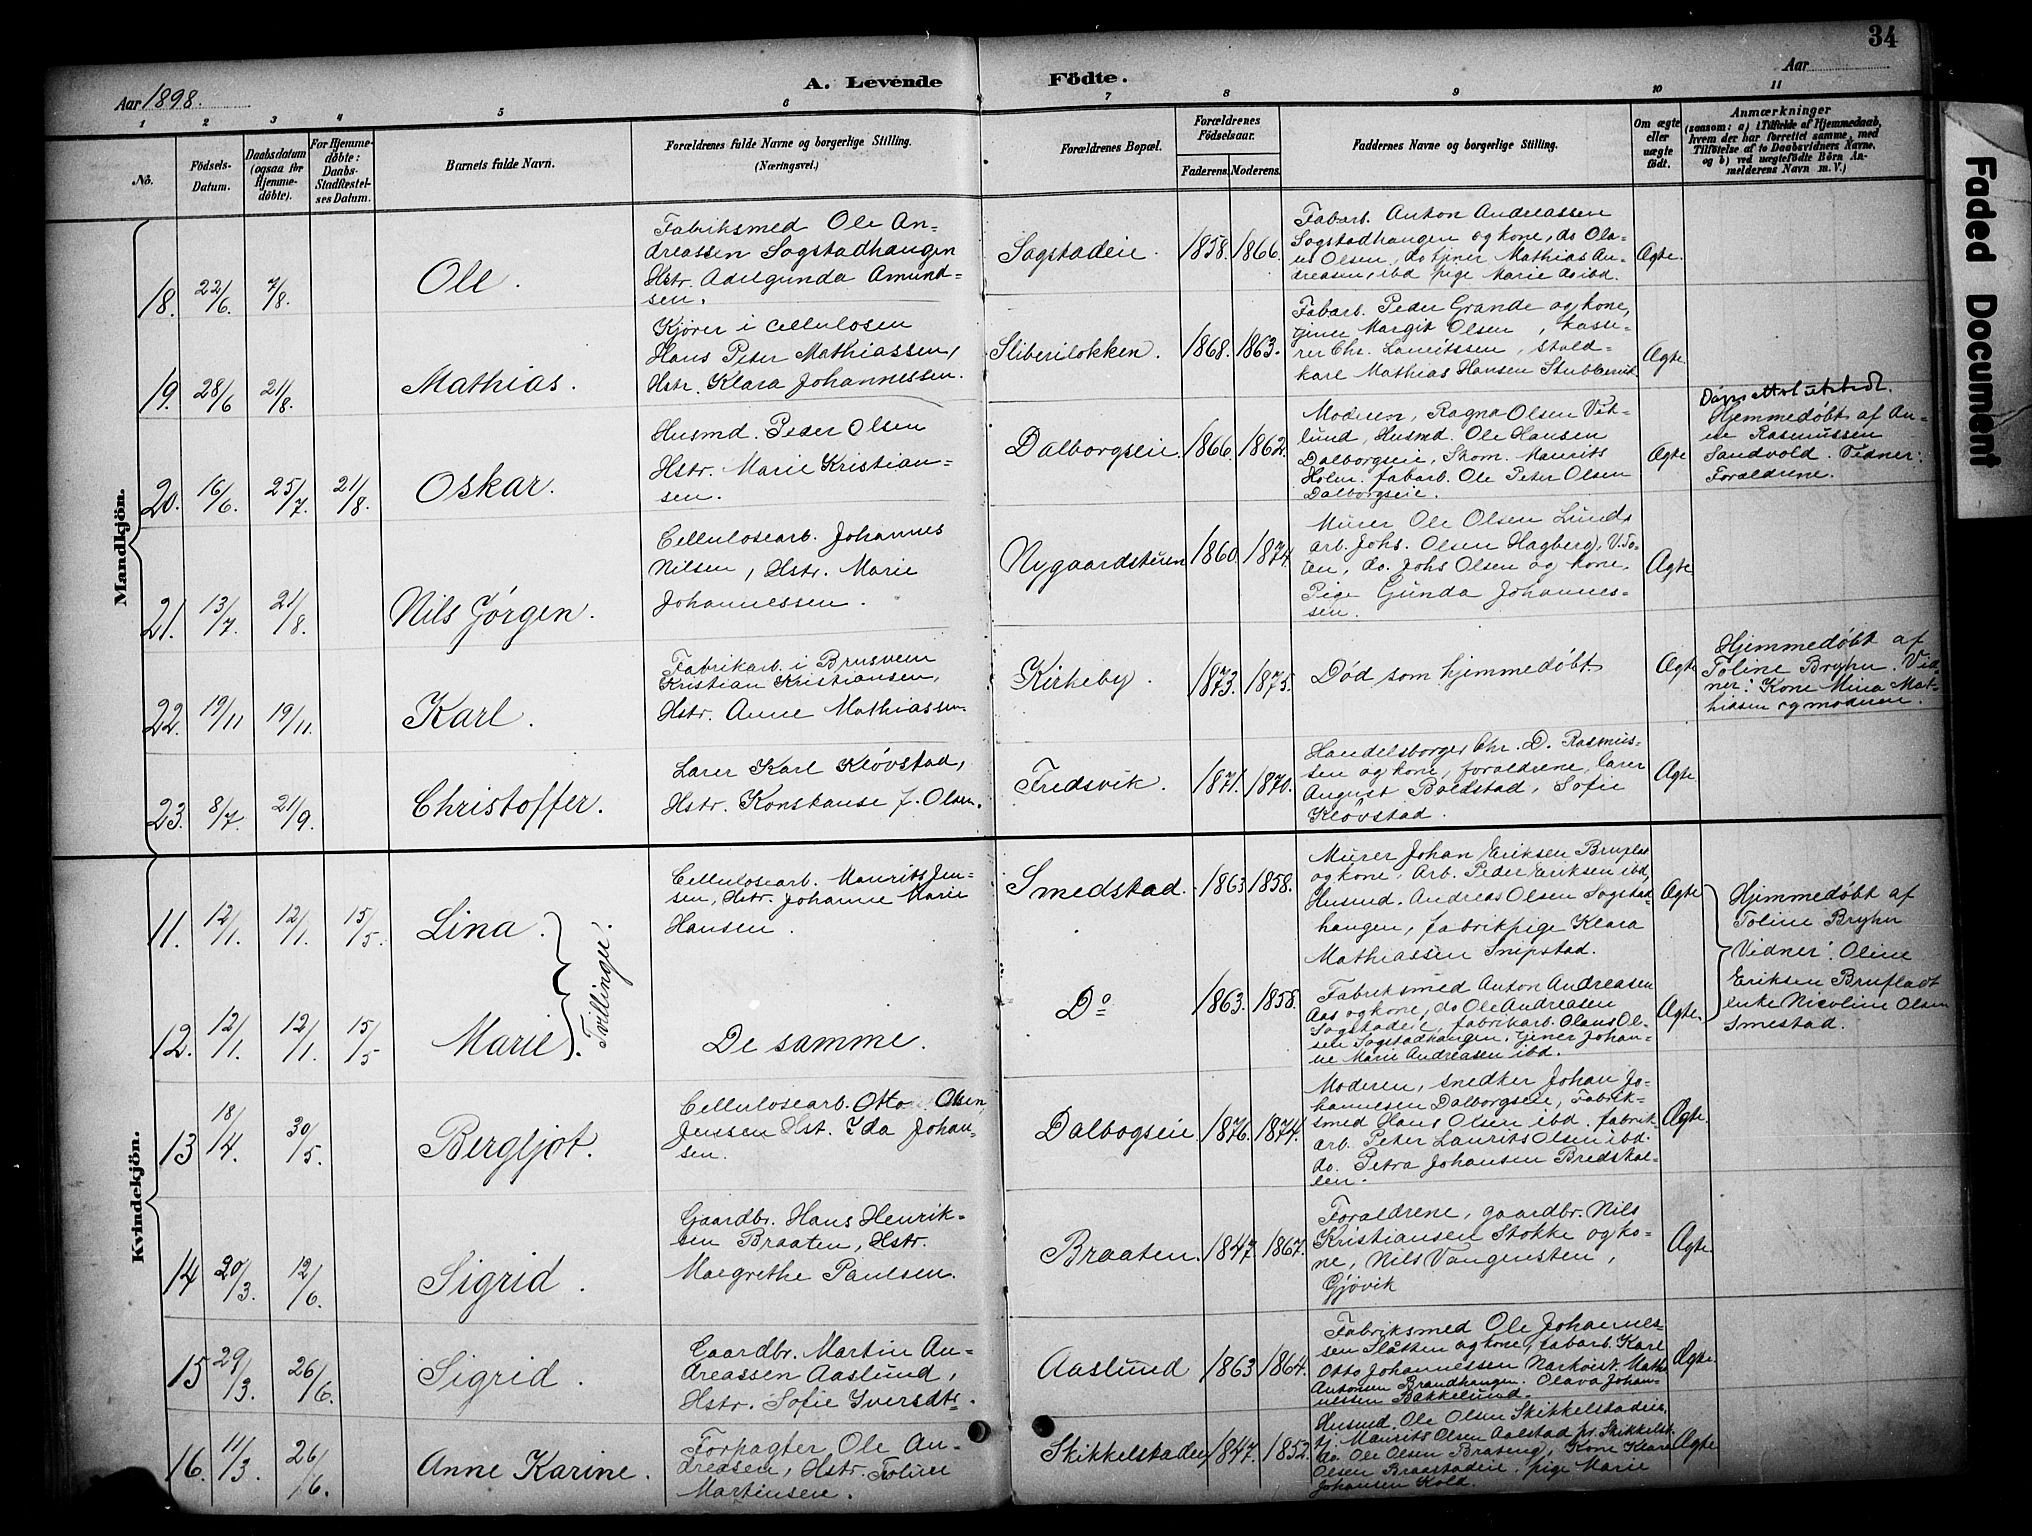 34
A. Levende Födte.
Aar 1898.
Aar
1 2 3 4 5 6 7 8 9 10 11
No.
Födsels-Datum.
Daabsdatum (ogsaa for Hjemmedöbte).
For Hjemmedöbte: Daabs-Stadfæstelses Datum.
Barnets fulde Navn.
Forældrenes fulde Navne og borgerlige Stilling. (Næringsvei.)
Forældrenes Bopæl.
Forældrenes Födselsaar.
Faderens. Moderens.
Faddernes Navne og borgerlige Stilling.
Om ægte eller uægte födt.
Anmærkninger
(saasom: a) i Tilfælde af Hjemmedaab, hvem der har forrettet samme, med Tilföielse af to Daabsvidners Navne, og b) ved uægtefödte Börn Anmelderens Navn m. V.)
Mandkjön.
18. 22/6 7/8. Ole.
Fabriksmed Ole An-
dreassen Sogstadhaugen
Hstr. Adelgunda Amund-
sen.
Sogstadeie. 1858. 1866.
Fabarb. Anton Andreassen
Sogstadhaugen og kone, do Ola-
us Olsen, do tjener Mathias An-
dreasen, ibd pige Marie do ibd.
Ægte.
19. 28/6 21/8. Mathias.
Kjører i Cellulosen
Hans Peter Mathiassen,
Hstr. Klara Johannessen.
Sliberiløkken. 1868. 1863.
Fabarb. Peder Grande og kone,
Margit Olsen, kasse-
rer Chr. Lauritssen, stald-
karl Mathias Hansen
Ægte.
20. 16/6 25/7. 21/8. Oskar.
Husmd. Peder Olsen
Hstr. Marie Kristian-
sen.
Dalborgseie. 1866. 1862.
Moderen, Ragna Olsen Vet-
lund, Husmd. Ole Hansen
Dalborgseie, Skom. Maurits
Holm. fabarb. Ole Peter Olsen
Dalborgseie.
Ægte
Hjemmedøbt af An-
ne Rasmussen
Sandvold. Vidner:
Forældrene.
21. 13/7. 21/8. Nils Jørgen.
Cellulosearb. Johannes
Nilsen, Hstr. Marie
Johannessen.
Nygaardstuen 1860. 1874.
Murer Ole Olsen Lund,
arb. Johs. Olsen Hagberg, V. To-
ten, do. Johs Olsen og kone,
Pige Gunda Johannes-
sen.
Ægte
22. 19/11 19/11. Karl.
Fabrikarb. i Brusveen
Kristian Kristiansen,
Hstr. Anne Mathiassen.
Kirkeby. 1873. 1875.
Død som hjemmedøbt.
Ægte
Hjemmedøbt af
Toline Bryhn. Vid-
ner: Kone Mina Mat-
hiasen og moderen.
23. 8/7. 21/9. Christoffer.
Lærer Karl Kløvstad,
Hstr. Konstanse J. Olsen.
Fredsvik. 1871. 1870.
Handelsborger Chr. D. Rasmus-
sen og kone, forældrene, lærer
August Boldstad, Sofie
Kløvstad.
Ægte
Kvindekjön.
11. 12/1. 12/1. 15/5. Lina.
Tvillinger.
Cellulosearb. Maurits Jen-
sen, Hstr. Johanne Marie
Hansen.
Smedstad. 1863 1858.
Murer Johan Eriksen Bruflat
og kone, Arb. Peder Eriksen ibd,
Husmd. Andreas Olsen Sogstad-
haugen, fabrikpige Klara
Mathiassen Snipstad.
Ægte
Hjemmedøbt af
Toline Bryhn
Vidner: Oline
Eriksen Brufladt
enke Nicoline Olsen
Smestad.
12. 12/1. 12/1. 15/5 Marie.
De samme.
Do 1863. 1858.
Fabriksmed Anton Andreasen
Aas og kone, do Ole Andreasen
Sogstadeie, fabrikarb. Olaus Ol-
sen Sogstadhaugen, tjener Johan-
ne Marie Andreasen ibd.
Ægte.
13 18/4. 30/5. Bergljot.
Cellulosearb. Otto Olsen
Jenssen Hst. Ida Johan-
sen.
Dalbogseie 1876. 1874.
Moderen, snedker Johan Jo-
hannesen Dalborgseie, Fabrik-
smed Hans Olsen ibd. fabrik-
arb. Peter Laurits Olsen ibd.
do. Petra Johansen Bredskal-
len.
Ægte.
14 20/3. 12/6. Sigrid.
Gaardbr. Hans Henrik-
sen Braaten, Hstr.
Margrethe Paulsen.
Braaten. 1847. 1867.
Forældrene, gaardbr. Nils
Kristiansen Stokke og ko-
ne, Nils Vangensten,
Gjøvik
Ægte.
15 29/3. 26/6. Sigrid.
Gaardbr. Martin An-
dreassen Aaslund,
Hstr. Sofie Iversdtr.
Aaslund 1863 1864.
Fabriksmed Ole Johannes-
sen Slåtten og kone, fabarb. Karl
Otto Johannessen
Antonsen Brandhaugen. Olava Johan-
nessen Bakkelund.
Ægte.
16. 11/3. 26/6. Anne Karine.
Forpagter Ole An-
dreasen, Hstr. Toline
Martinsen.
Skikkelstadeie 1847. 1852.
Husmd. Ole Olsen Skikkelstadeie,
Maurits Olsen Aalstad pr. Skikkelst.
do. Ole Olsen Brateng, Kone Klara
Olsen Braastadeie, pige Marie
Johansen Kold.
Ægte
Faded Document